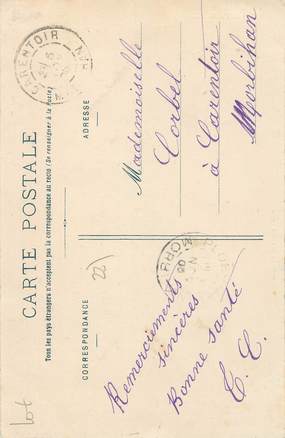 CARTE POSTALE
Tous les pays étrangers n'acceptent pas la correspondance au recto (Se renseigner à la poste)
CORRESPONDANCE
ADRESSE
Remerciements
sincères
Bonne santé
T. C.
Mademoiselle
Corbel
à Carentoir
Morbihan
CARENTOIR
22
lot